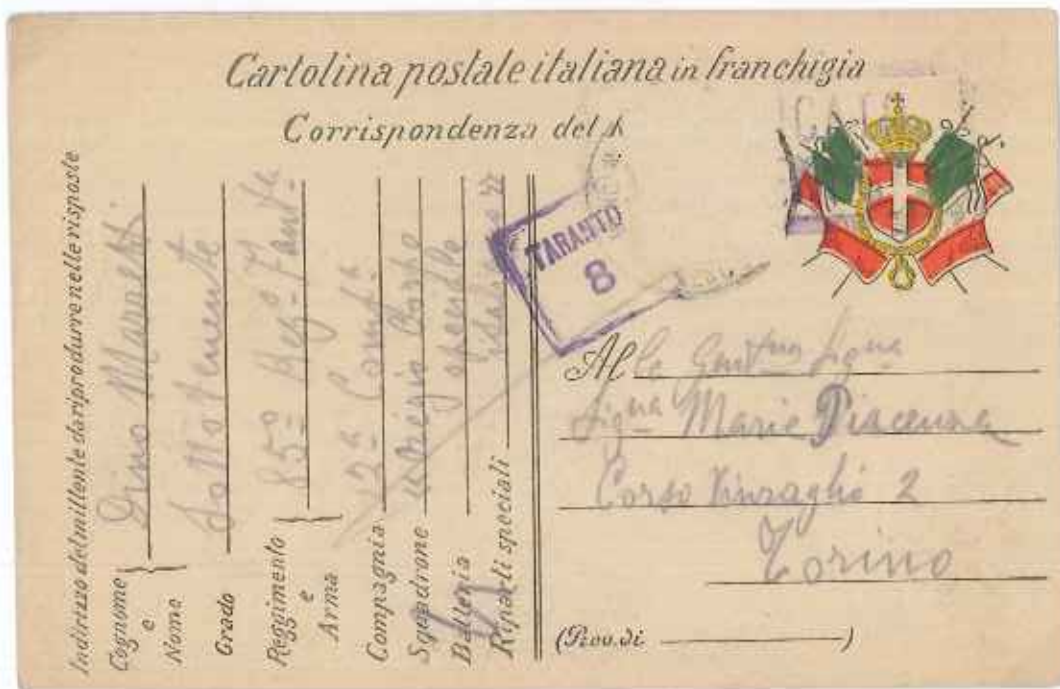 Cartolina postale italiana in franchigia
Corrispondenza del
Indirizzo del mittente da riprodurre nelle risposte
Cognome e Nome
Dino
Grado
Sottotenente
Reggimento e Arma
85º Regº Fant.
Compagnia
2ª Compª
Squadrone
Batteria
Riparti speciali
TARANTO
8
Alla Gentma Signa
Signa Maria Piacenza
Corso Vinzaglio 2
Torino
(Prov. di )